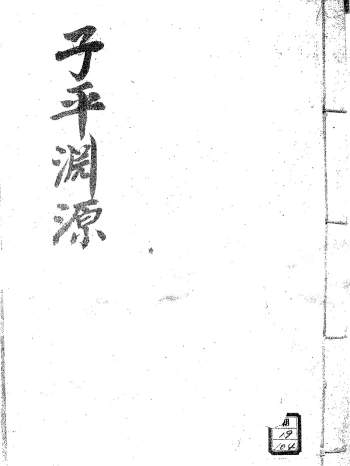 子平淵源
19
104